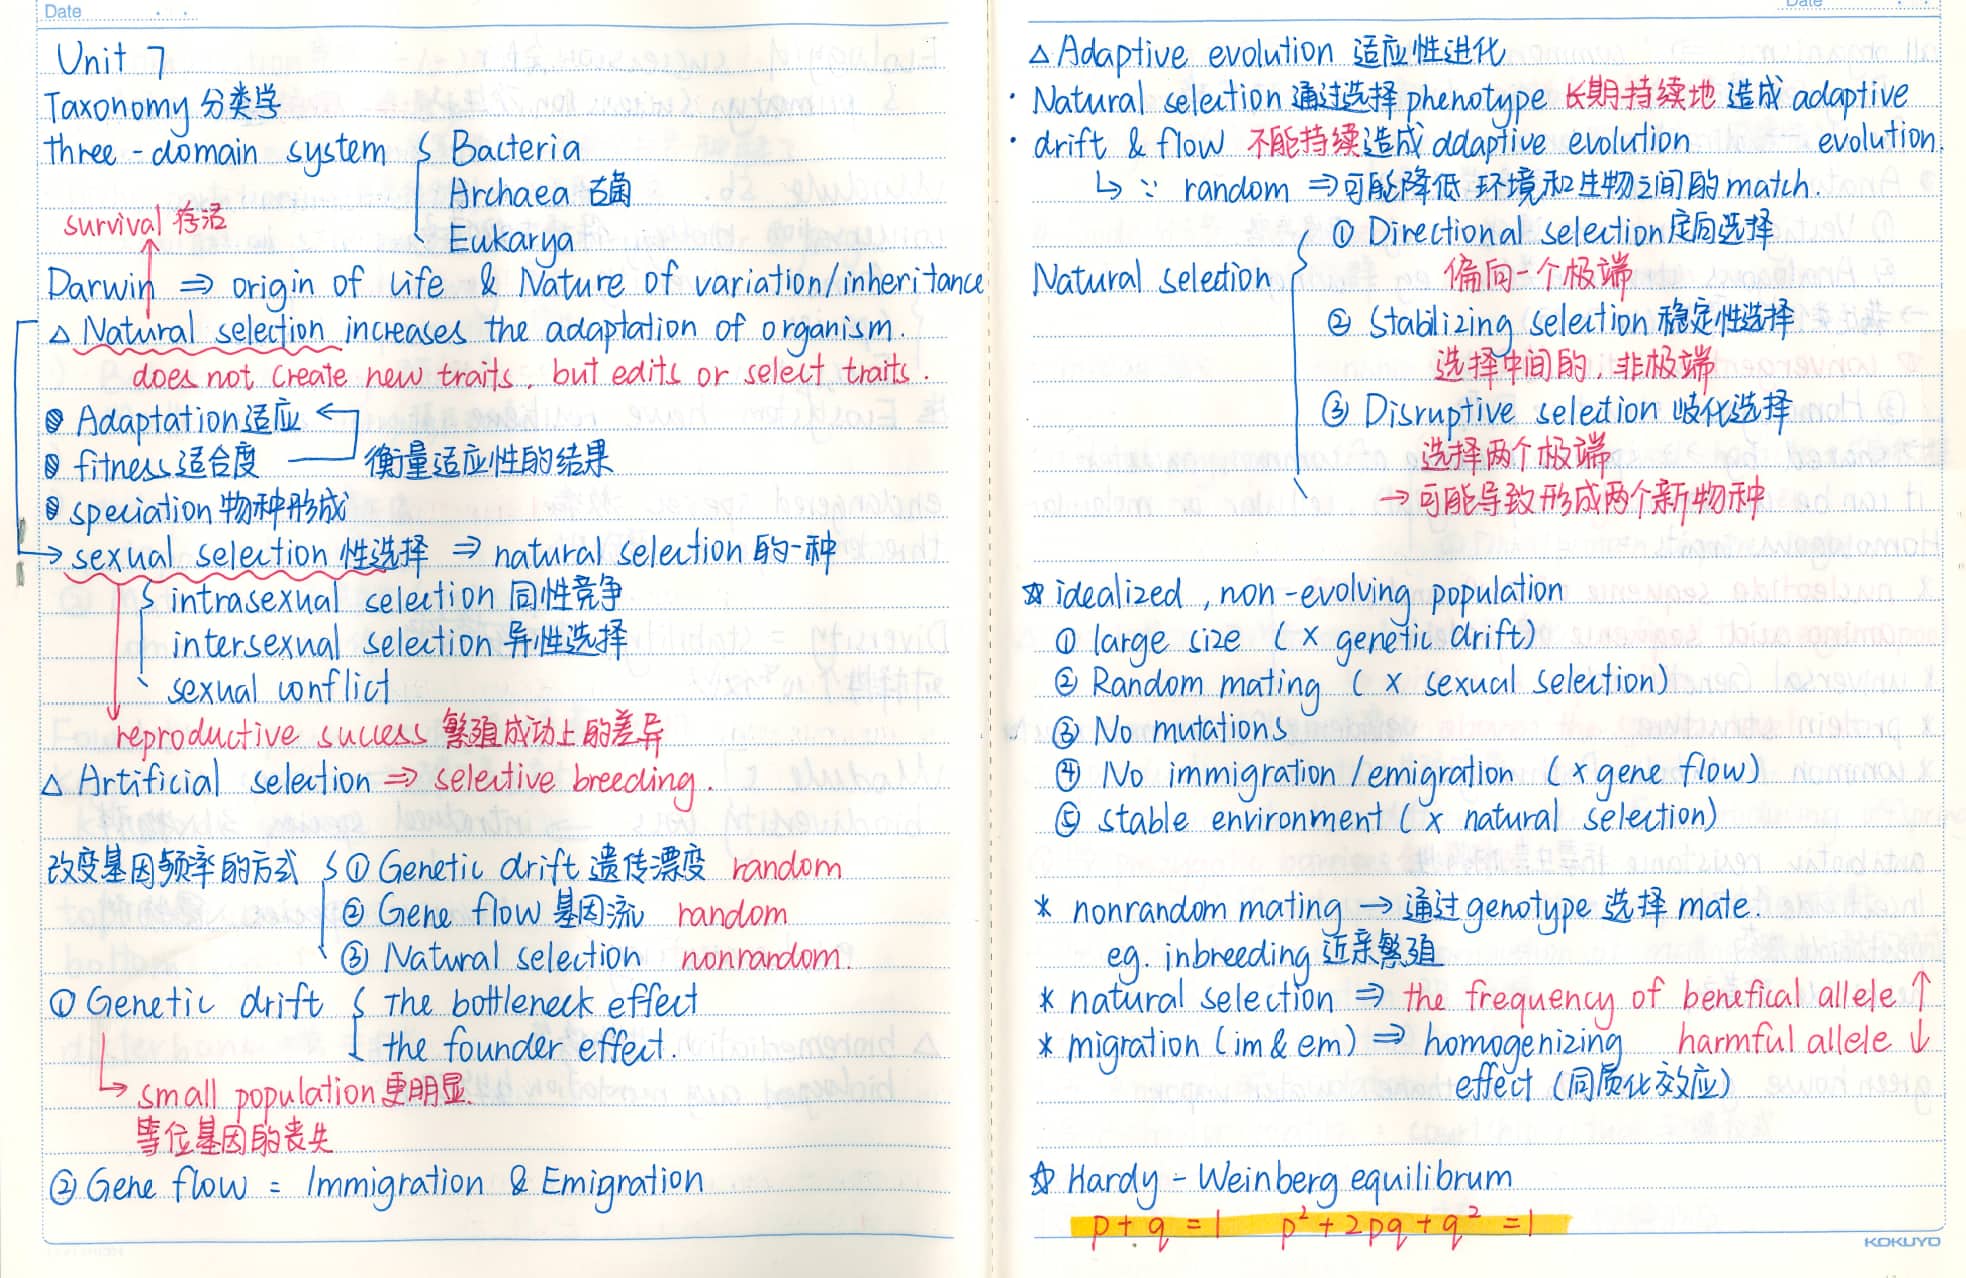 Date
Unit 7
Taxonomy 分类学
three-domain system { Bacteria
Archaea 古菌
Eukarya
survival 存活
Darwin ⇒ origin of life & Nature of variation/inheritance
△ Natural selection increases the adaptation of organism.
does not create new traits, but edits or select traits.
Adaptation 适应 ←
fitness 适合度 — 衡量适应性的结果
speciation 物种形成
→ sexual selection 性选择 ⇒ natural selection 的一种
{ intrasexual selection 同性竞争
intersexual selection 异性选择
sexual conflict
reproductive success 繁殖成功上的差异
△ Artificial selection ⇒ selective breeding.
改变基因频率的方式 { ① Genetic drift 遗传漂变 random
② Gene flow 基因流 random
③ Natural selection nonrandom.
① Genetic drift { The bottleneck effect
the founder effect.
→ small population 更明显.
等位基因的丧失
② Gene flow = Immigration & Emigration
Date
△ Adaptive evolution 适应性进化
· Natural selection 通过选择 phenotype 长期持续地 造成 adaptive
evolution.
· drift & flow 不能持续造成 adaptive evolution
↳ ∵ random ⇒ 可能降低 环境和生物之间的 match.
Natural selection { ① Directional selection 定向选择
偏向一个极端
② Stabilizing selection 稳定性选择
选择中间的, 非极端
③ Disruptive selection 歧化选择
选择两个极端
→ 可能导致形成两个新物种
☆ idealized, non-evolving population
① large size (× genetic drift)
② Random mating (× sexual selection)
③ No mutations
④ No immigration/emigration (× gene flow)
⑤ stable environment (× natural selection)
* nonrandom mating → 通过 genotype 选择 mate.
eg. inbreeding 近亲繁殖
* natural selection ⇒ the frequency of benefical allele ↑
harmful allele ↓
* migration (im & em) ⇒ homogenizing
effect (同质化效应)
☆ Hardy-Weinberg equilibrum
p+q=1 p²+2pq+q²=1
KOKUYO